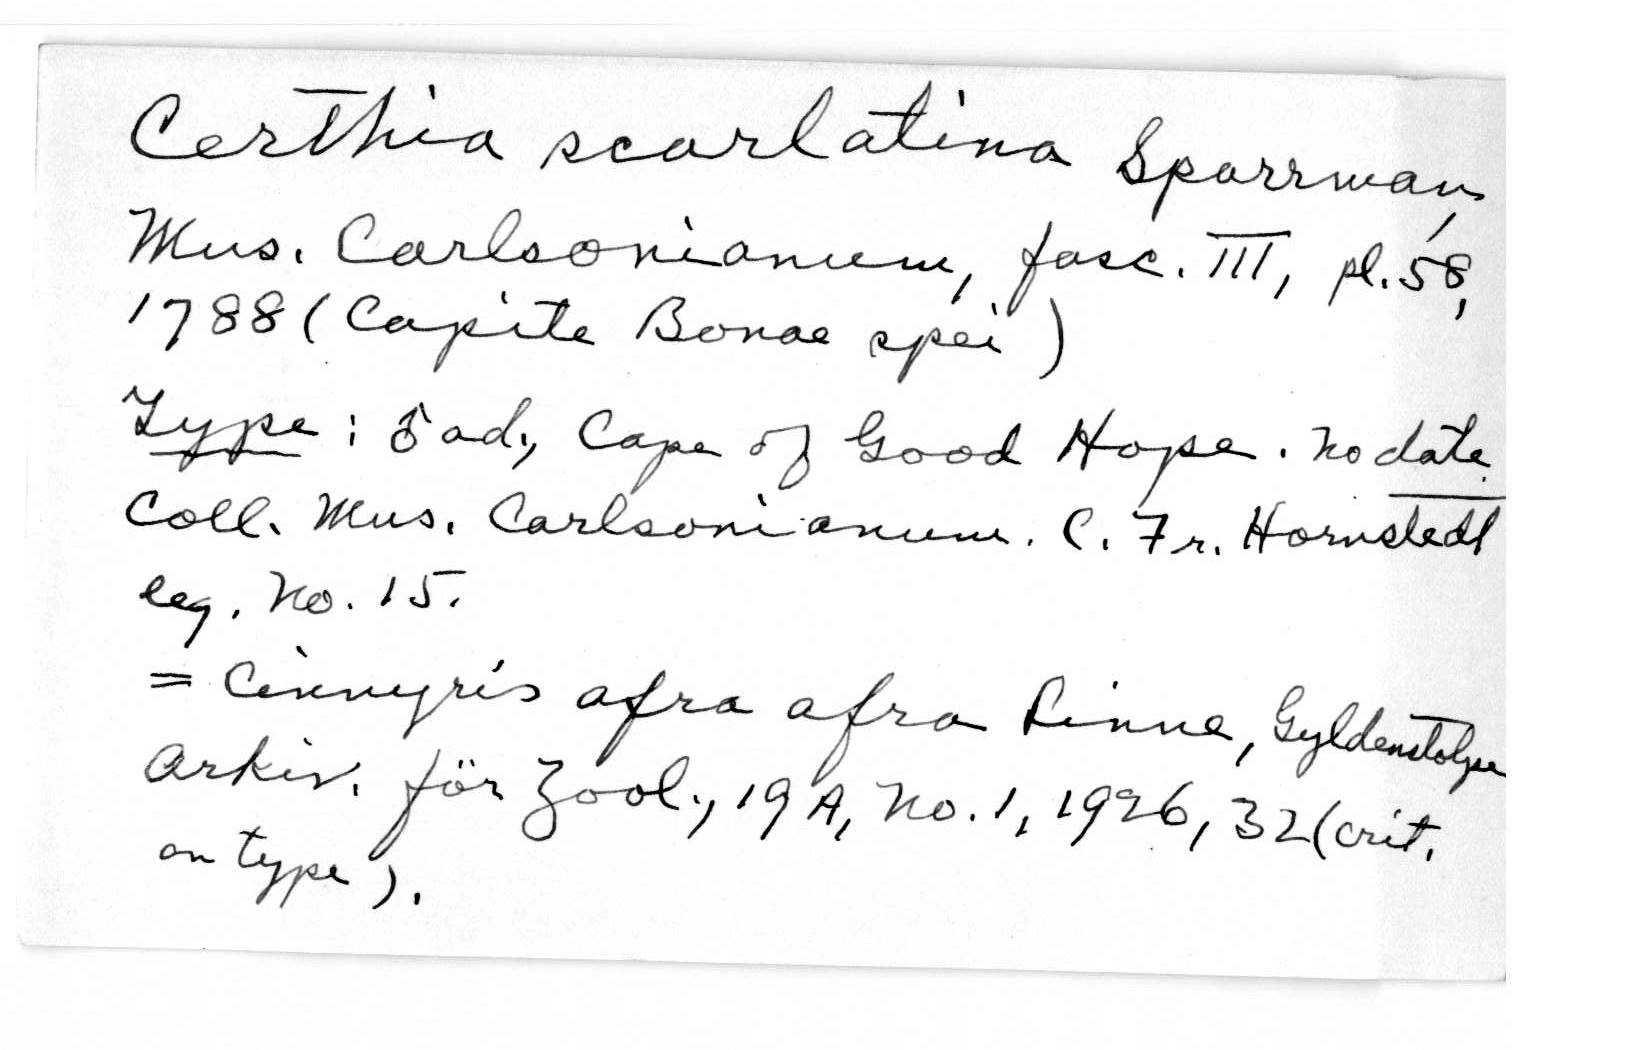 Certhia scarlatina Sparrman,
Mus. Carlsonianum, fasc. III, pl. 58,
1788 (Capite Bonae spei)
Type: ♂ ad., Cape of Good Hope. No date.
Coll. Mus. Carlsonianum. C. Fr. Hornstedt
leg. No. 15.
= Cinnyris afra afra Linne, Gyldenstolpe
Arkiv. för Zool., 19A, No. 1, 1926, 32 (crit.
on type).